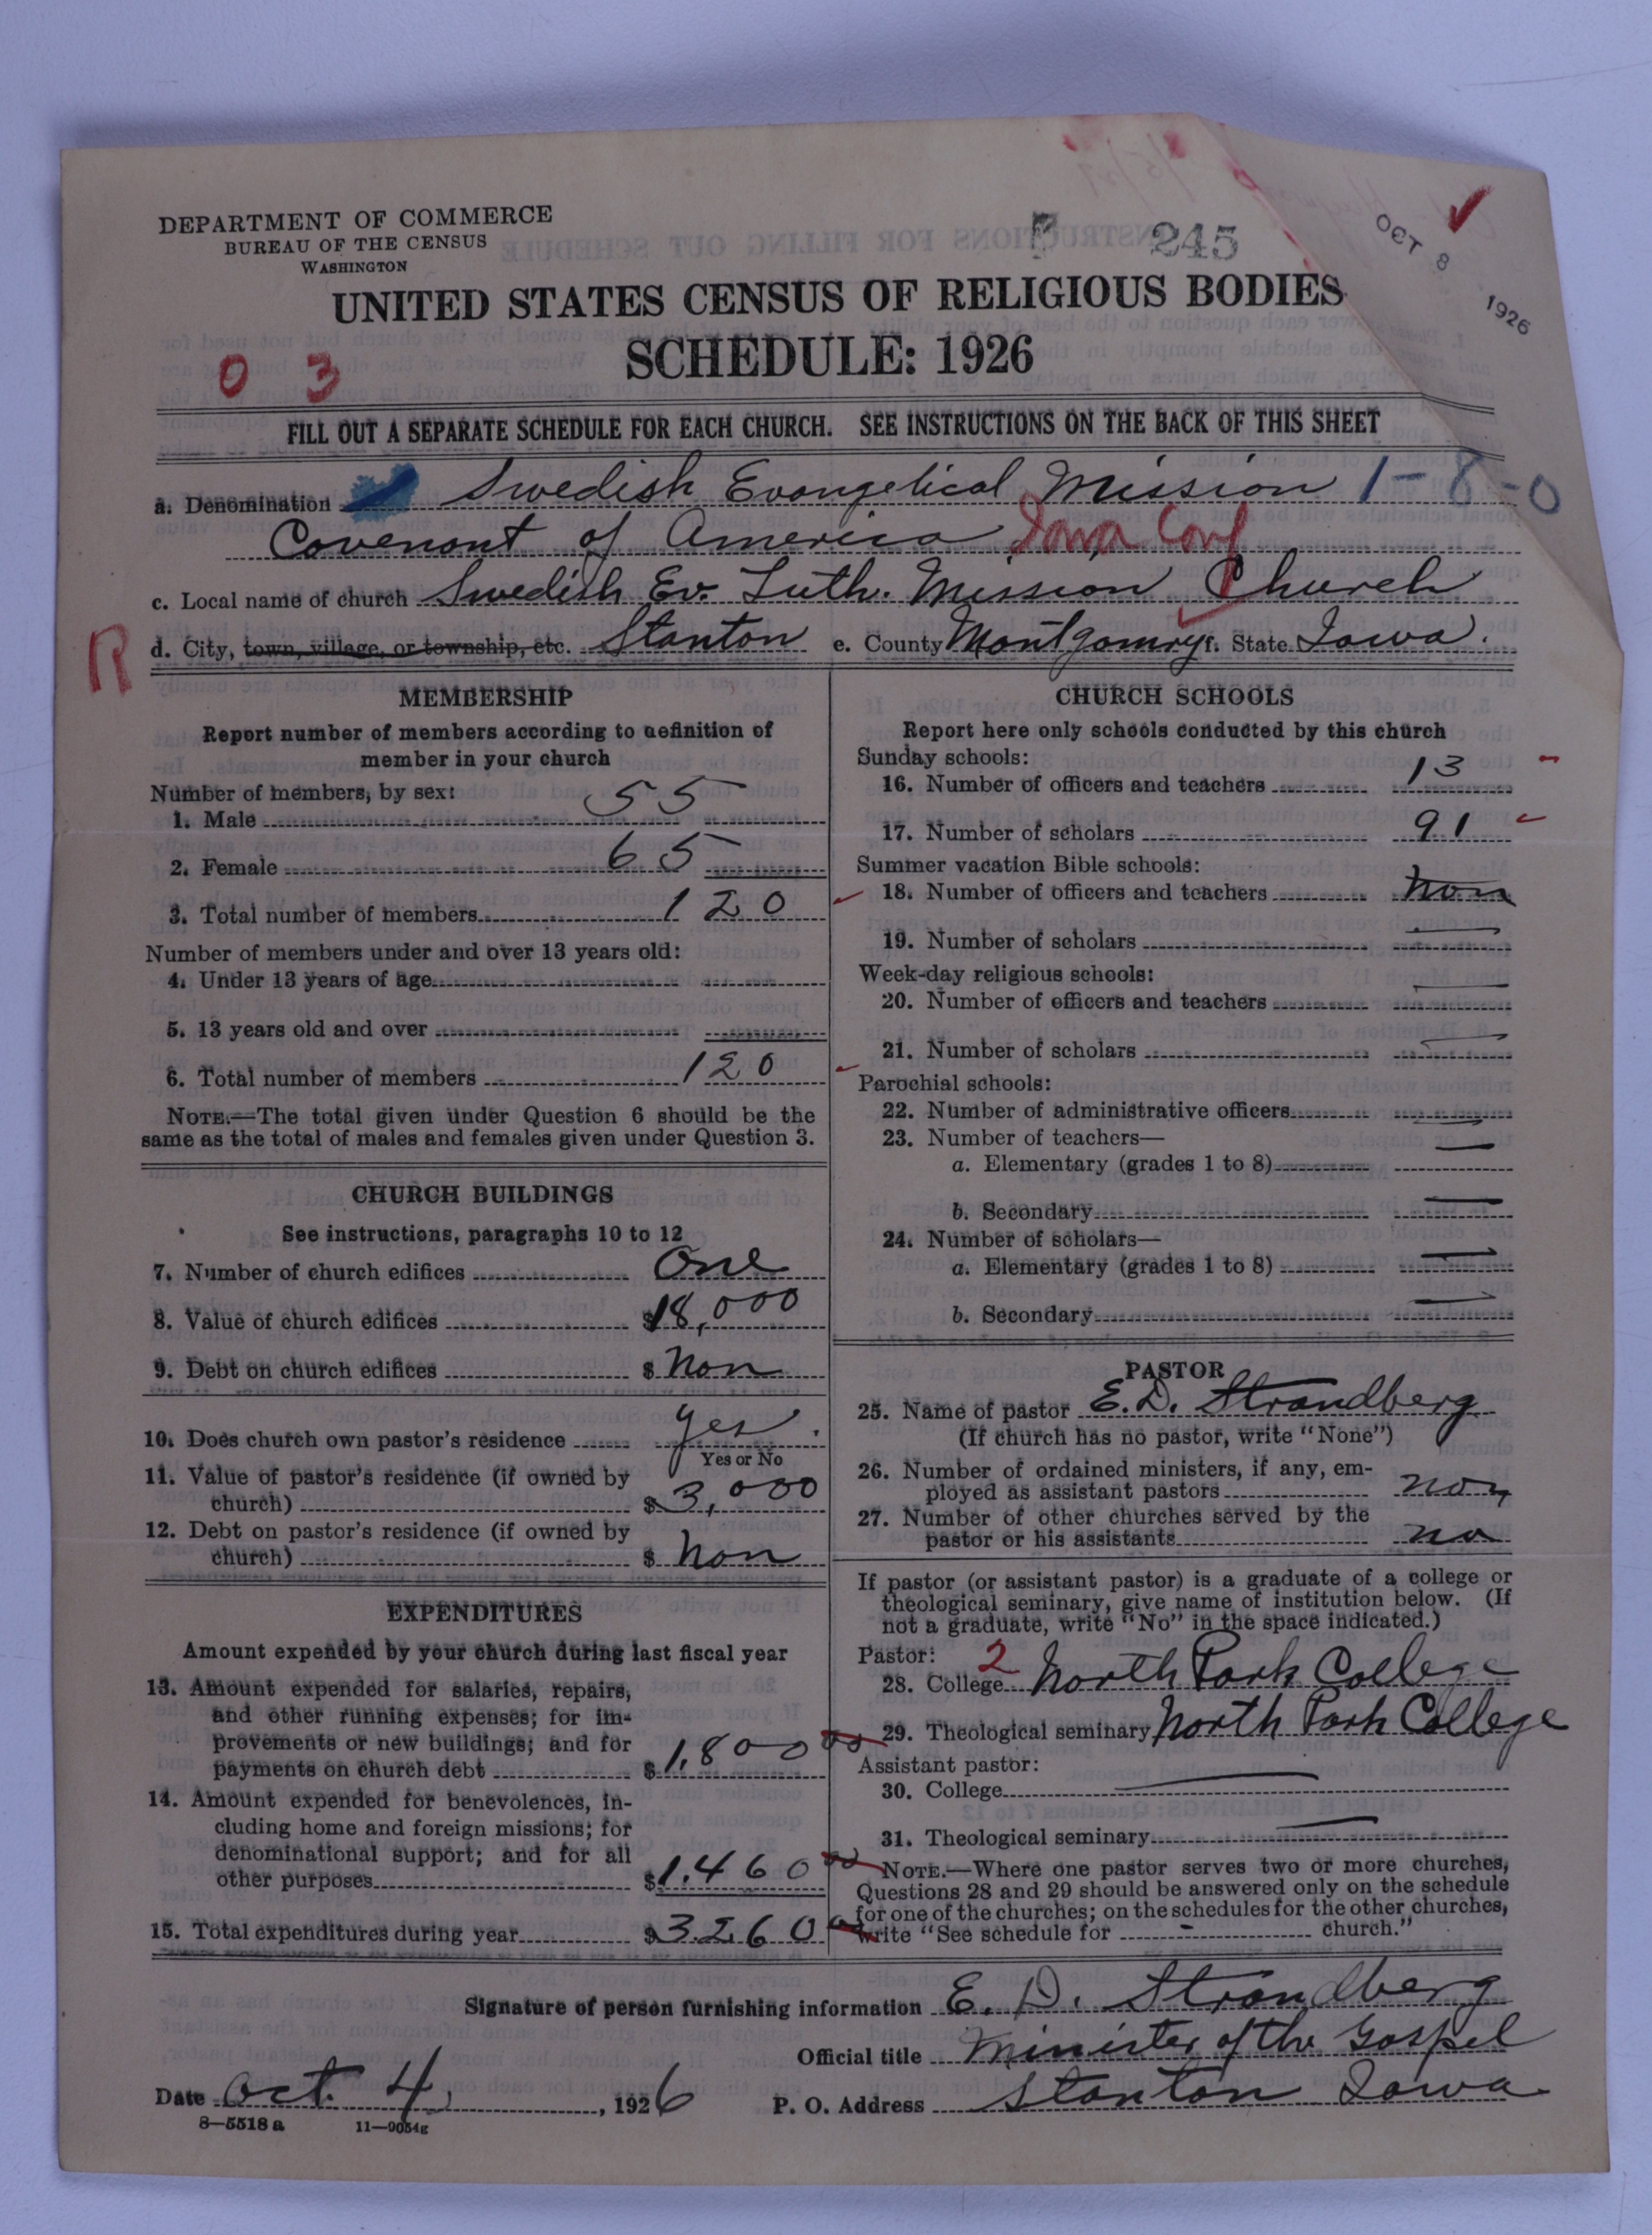 DEPARTMENT OF COMMERCE
BUREAU OF THE CENSUS
WASHINGTON
245
OCT 8 1926
UNITED STATES CENSUS OF RELIGIOUS BODIES
SCHEDULE: 1926
0 3
FILL OUT A SEPARATE SCHEDULE FOR EACH CHURCH. SEE INSTRUCTIONS ON THE BACK OF THIS SHEET
a. Denomination Swedish Evangelical Mission 1-8-0
Covenant of America Iowa Conf
c. Local name of church Swedish Ev. Luth. Mission Church
R d. City, town, village, or township, etc. Stanton e. County Montgomry f. State Iowa.
MEMBERSHIP
Report number of members according to definition of
member in your church
Number of members, by sex:
1. Male 55
2. Female 65
3. Total number of members 120
Number of members under and over 13 years old:
4. Under 13 years of age
5. 13 years old and over
6. Total number of members 120
NOTE.—The total given under Question 6 should be the
same as the total of males and females given under Question 3.
CHURCH BUILDINGS
See instructions, paragraphs 10 to 12
7. Number of church edifices One
8. Value of church edifices $18,000
9. Debt on church edifices $ Non
10. Does church own pastor's residence Yes.
Yes or No
11. Value of pastor's residence (if owned by
church) $3,000
12. Debt on pastor's residence (if owned by
church) $ Non
EXPENDITURES
Amount expended by your church during last fiscal year
13. Amount expended for salaries, repairs,
and other running expenses; for im-
provements or new buildings; and for
payments on church debt $1,800 00
14. Amount expended for benevolences, in-
cluding home and foreign missions; for
denominational support; and for all
other purposes $1.460 00
15. Total expenditures during year $3.260 00
CHURCH SCHOOLS
Report here only schools conducted by this church
Sunday schools:
16. Number of officers and teachers 13
17. Number of scholars 91
Summer vacation Bible schools:
18. Number of officers and teachers Non
19. Number of scholars —
Week-day religious schools:
20. Number of officers and teachers —
21. Number of scholars —
Parochial schools:
22. Number of administrative officers —
23. Number of teachers—
a. Elementary (grades 1 to 8) —
b. Secondary —
24. Number of scholars—
a. Elementary (grades 1 to 8) —
b. Secondary —
PASTOR
25. Name of pastor E. D. Strandberg
(If church has no pastor, write "None")
26. Number of ordained ministers, if any, em-
ployed as assistant pastors non
27. Number of other churches served by the
pastor or his assistants no
If pastor (or assistant pastor) is a graduate of a college or
theological seminary, give name of institution below. (If
not a graduate, write "No" in the space indicated.)
Pastor: 2
28. College North Park College
29. Theological seminary North Park College
Assistant pastor:
30. College —
31. Theological seminary —
NOTE.—Where one pastor serves two or more churches,
Questions 28 and 29 should be answered only on the schedule
for one of the churches; on the schedules for the other churches,
write "See schedule for - church."
Signature of person furnishing information E. D. Strandberg
Official title Minister of the Gospel
Date Oct. 4, 1926 P. O. Address Stanton Iowa
8—5518 a 11—9054g